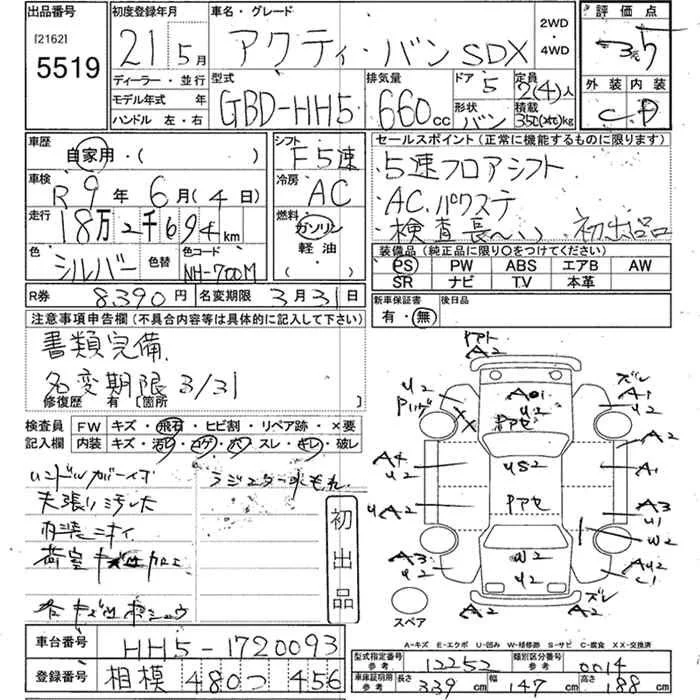 出品番号
[2162]
5519
初度登録年月
21 5月
ディーラー・並行
モデル年式 年
ハンドル 左・右
車名・グレード
アクティ・バン SDX
2WD
・
4WD
型式
GBD-HH5
排気量
660cc
ドア
5
形状
バン
定員
2(4)人
積載
350(200)kg
評価点
外装 内装
C D
車歴
自家用・( )
車検
R9年 6月(4日)
走行
18万2千694km
色
シルバー
色替
色コード
NH-700M
シフト
F5速
冷房
AC
燃料
ガソリン
軽油
セールスポイント(正常に機能するものに限ります)
5速フロアシフト
AC.パワステ
検査長〜い 初出品
装備品(純正品に限り○をつけてください)
PS PW ABS エアB AW
SR ナビ T.V 本革
R券 8,390円
名変期限 3月31日
新車保証書
有・無
後日品
注意事項申告欄(不具合内容等は具体的に記入して下さい)
書類完備.
名変期限 3/31
修復歴 有 [箇所
検査員
記入欄
FW キズ・飛石・ヒビ割・リペア跡・×要
内装 キズ・汚れ・コゲ・穴・スレ・キレ・破レ
ハンドルガーイブ
天張り汚レ
ラジエター水もれ
内装ニオイ
荷室
初出品
アト
A2
U2
A1
U2
ズレ
A1
U2
A2
A4
U2
US2
A1
UA2
Pアセ
A3
U1
W2
A3
U2
W2
U2
A2
ズレ
A2
AU2
C1
スペア
A-キズ E-エクボ U-凹み W-補修跡 S-サビ C-腐食 XX-交換済
車台番号
HH5-1720093
登録番号
相模 480 つ 456
型式指定番号
参考
12252
類別区分番号
参考
0014
車庫証明用
参考
長さ 339cm 幅 147cm 高さ 188cm